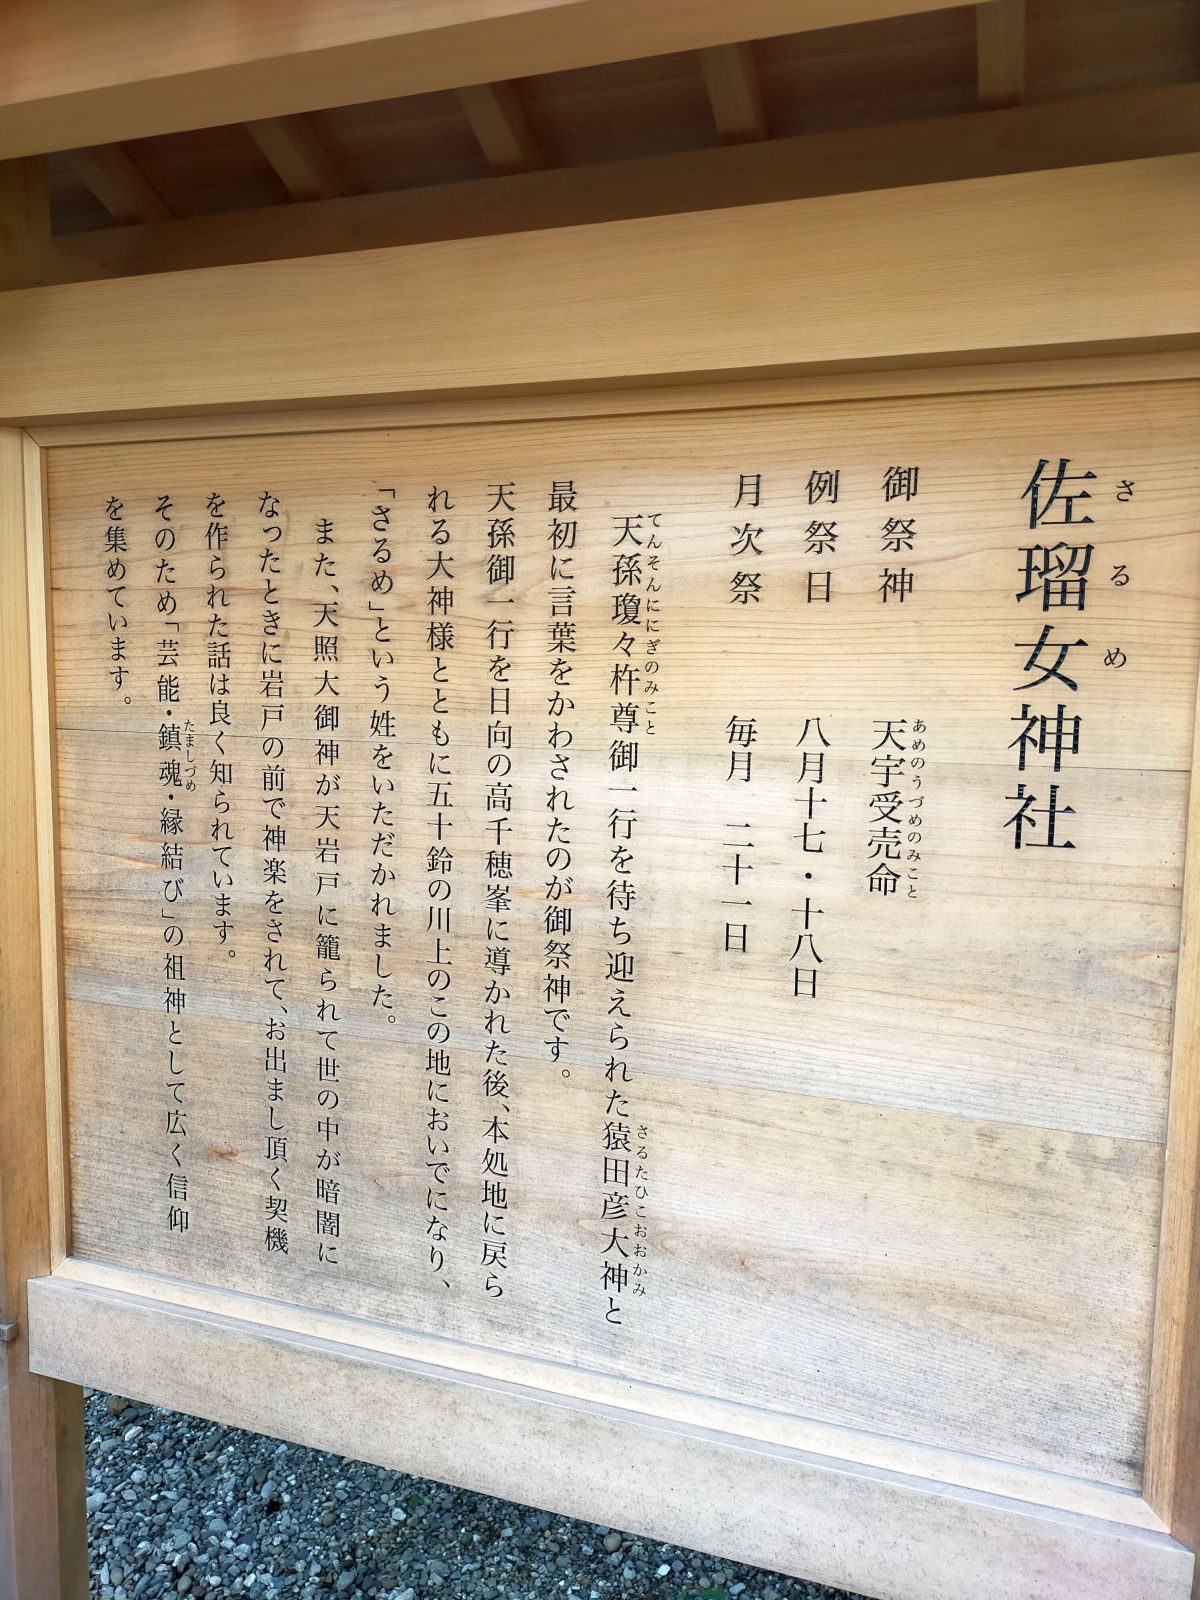 佐瑠女神社
さるめ
御祭神 天宇受売命
あめのうづめのみこと
例祭日 八月十七・十八日
月次祭 毎月 二十一日
天孫瓊々杵尊御一行を待ち迎えられた猿田彦大神と
てんそんににぎのみこと
さるたひこおおかみ
最初に言葉をかわされたのが御祭神です。
天孫御一行を日向の高千穂峯に導かれた後、本処地に戻ら
れる大神様とともに五十鈴の川上のこの地においでになり、
「さるめ」という姓をいただかれました。
また、天照大御神が天岩戸に籠られて世の中が暗闇に
なったときに岩戸の前で神楽をされて、お出まし頂く契機
を作られた話は良く知られています。
そのため「芸能・鎮魂・縁結び」の祖神として広く信仰
たましづめ
を集めています。